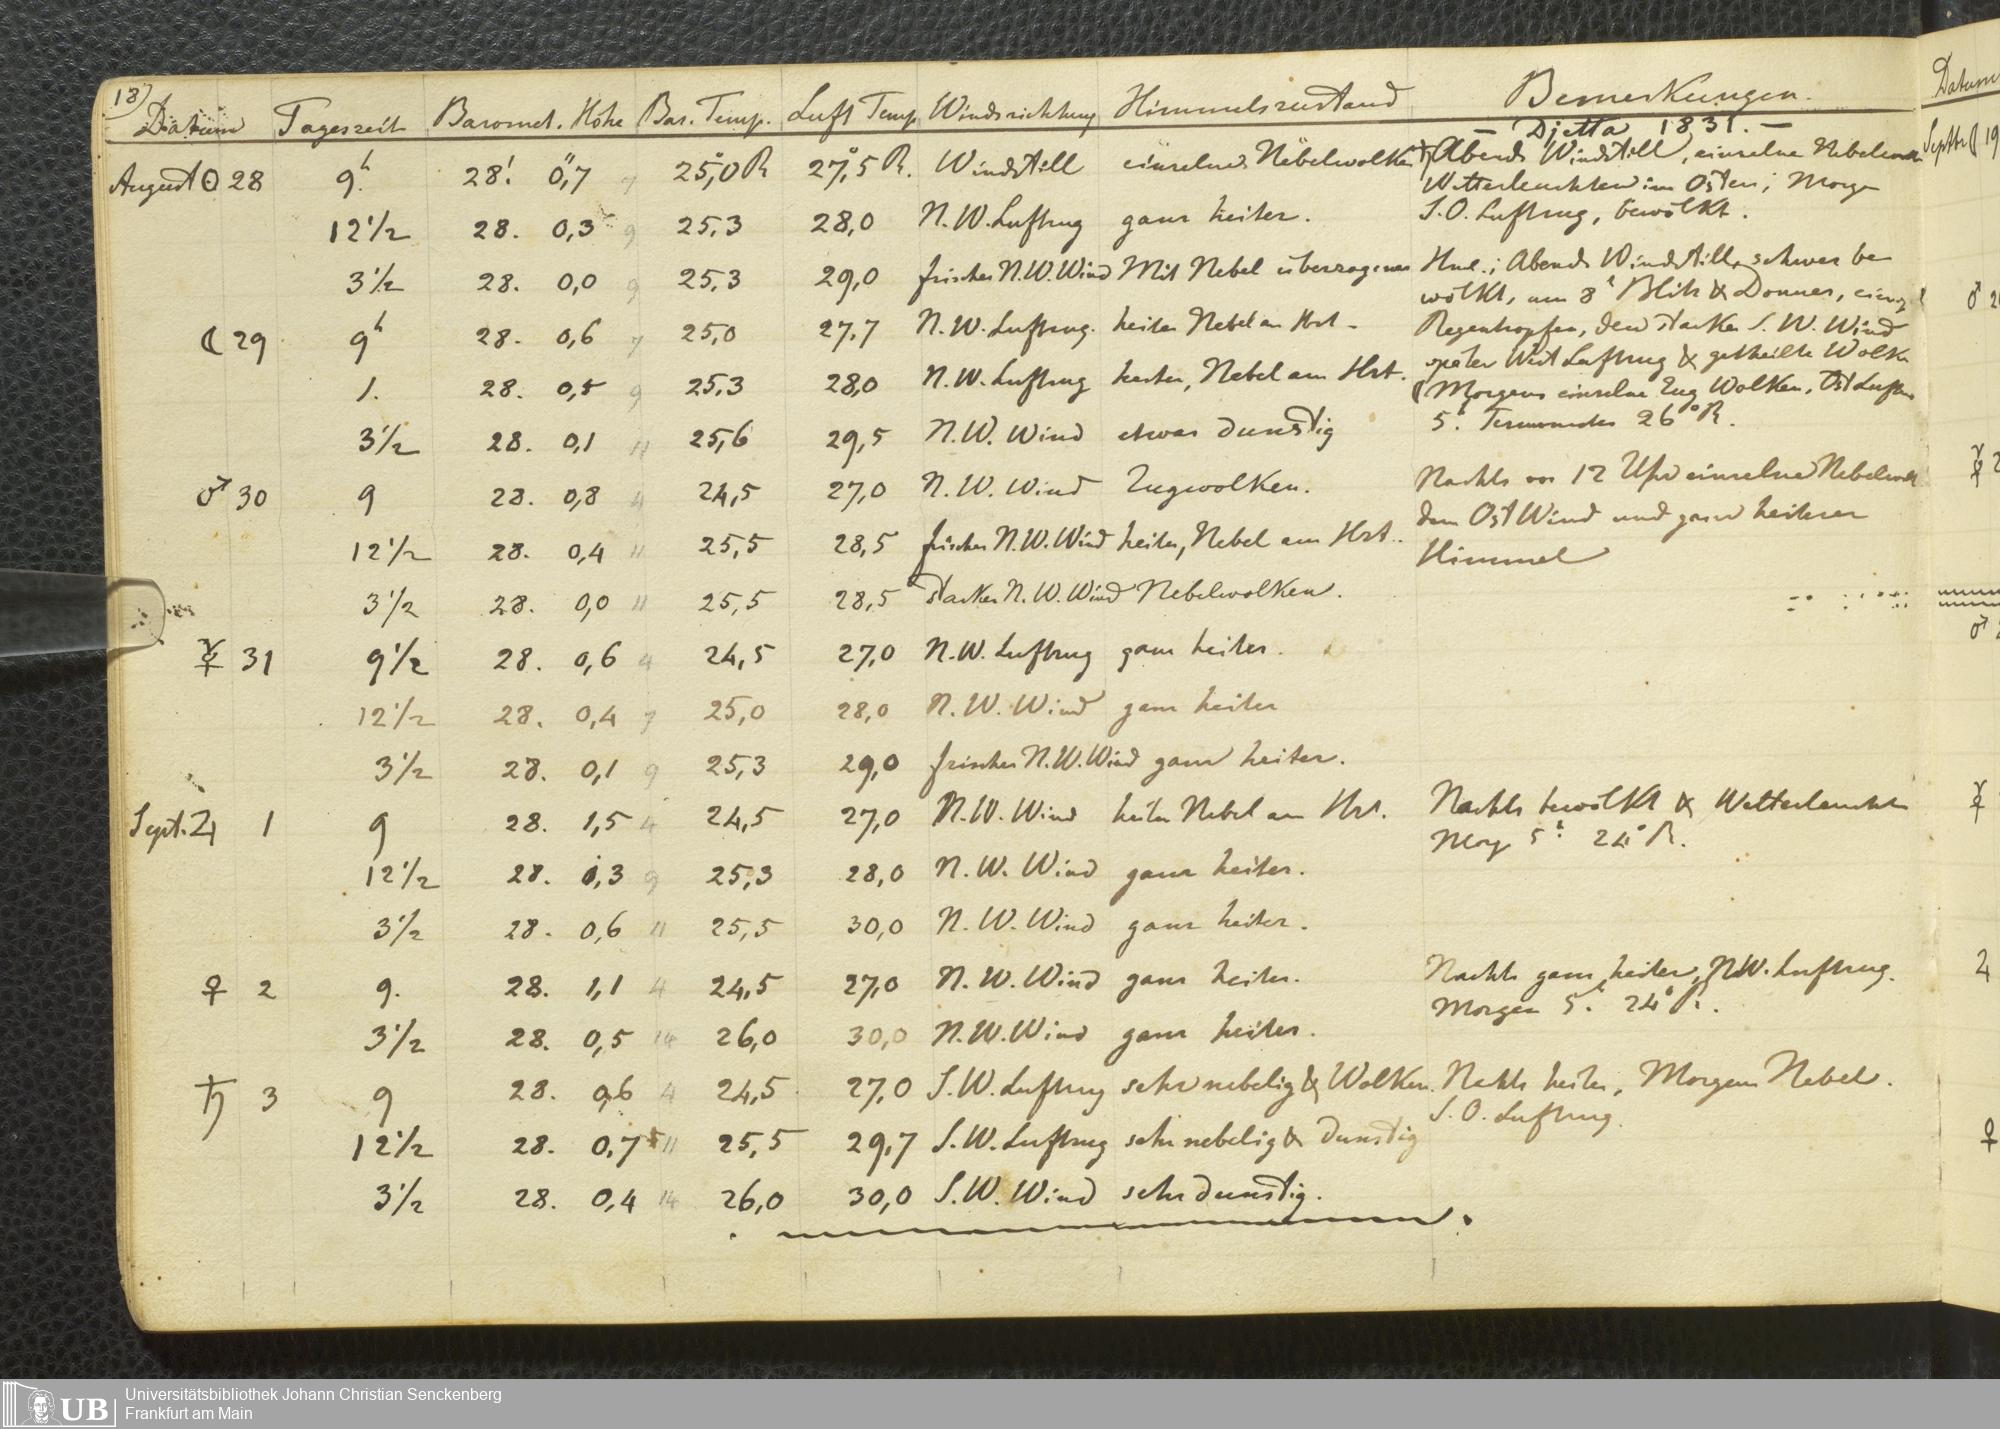 18)
Datum Tageszeit Baromet. Höhe Bar. Temp. Luft Temp. Windsrichtung Himmelszustand Bemerkungen.
— Djetta 1831. —
August ☉ 28 9h. 28.' 0,"7 7 25,°0 R 27,°5 R. Windstill einzelne Nebelwolken
12 1/2 28. 0,3 9 25,3 28,0 N.W. Luftzug ganz heiter.
3 1/2 28. 0,0 9 25,3 29,0 frischer N.W. Wind Mit Nebel überzogener
☾ 29 9h 28. 0,6 7 25,0 27,7 N.W. Luftzug. heiter Nebel am Hrt.
1. 28. 0,5 9 25,3 28,0 N.W. Luftzug heiter, Nebel am Hrt.
3 1/2 28. 0,1 11 25,6 29,5 N.W. Wind etwas dunstig
♂ 30 9 28. 0,8 4 24,5 27,0 N.W. Wind Zugwolken.
12 1/2 28. 0,4 11 25,5 28,5 frischer N.W. Wind heiter, Nebel am Hrt.
3 1/2 28. 0,0 11 25,5 28,5 starker N.W. Wind Nebelwolken.
☿ 31 9 1/2 28. 0,6 4 24,5 27,0 N.W. Luftzug ganz heiter.
12 1/2 28. 0,4 7 25,0 28,0 N.W. Wind ganz heiter
3 1/2 28. 0,1 9 25,3 29,0 frischer N.W. Wind ganz heiter.
Sept. ♃ 1 9 28. 1,5 4 24,5 27,0 N.W. Wind heiter Nebel am Hrt.
12 1/2 28. 1,3 9 25,3 28,0 N.W. Wind ganz heiter.
3 1/2 28. 0,6 11 25,5 30,0 N.W. Wind ganz heiter.
♀ 2 9. 28. 1,1 4 24,5 27,0 N.W. Wind ganz heiter.
3 1/2 28. 0,5 14 26,0 30,0 N.W. Wind ganz heiter.
♄ 3 9 28. 0,6 4 24,5 27,0 S.W. Luftzug sehr nebelig & Wolken
12 1/2 28. 0,7 11 25,5 29,7 S.W. Luftzug sehr nebelig & dunstig
3 1/2 28. 0,4 14 26,0 30,0 S.W. Wind sehr dunstig.
Abends Windstill, einzelne Nebelwolken
Wetterleuchten im Osten; Morgen
S.O. Luftzug, bewölkt.
Hml.; Abends Windstill, schwer be
wölkt, um 8h Blitz & Donner, einzel
Regentropfen, dem starker S.W. Wind
später West Luftzug & getheilte Wolken
Morgens einzelne Zug Wolken, Ost Luftzug
5h. Termometer 26° R.
Nachts vor 12 Uhr einzelne Nebelwolk
dem Ost Wind und ganz heiterer
Himmel
Nachts bewölkt & Wetterleuchten
Morg 5h. 24° R.
Nachts ganz heiter, N.W. Luftzug.
Morgen 5h. 24° R.
Nachts heiter, Morgens Nebel.
S.O. Luftzug.
Datum
Septbr ☾ 19
♂ 2
☿ 2
♂ 2
☿
♃
♀
UB
Universitätsbibliothek Johann Christian Senckenberg
Frankfurt am Main